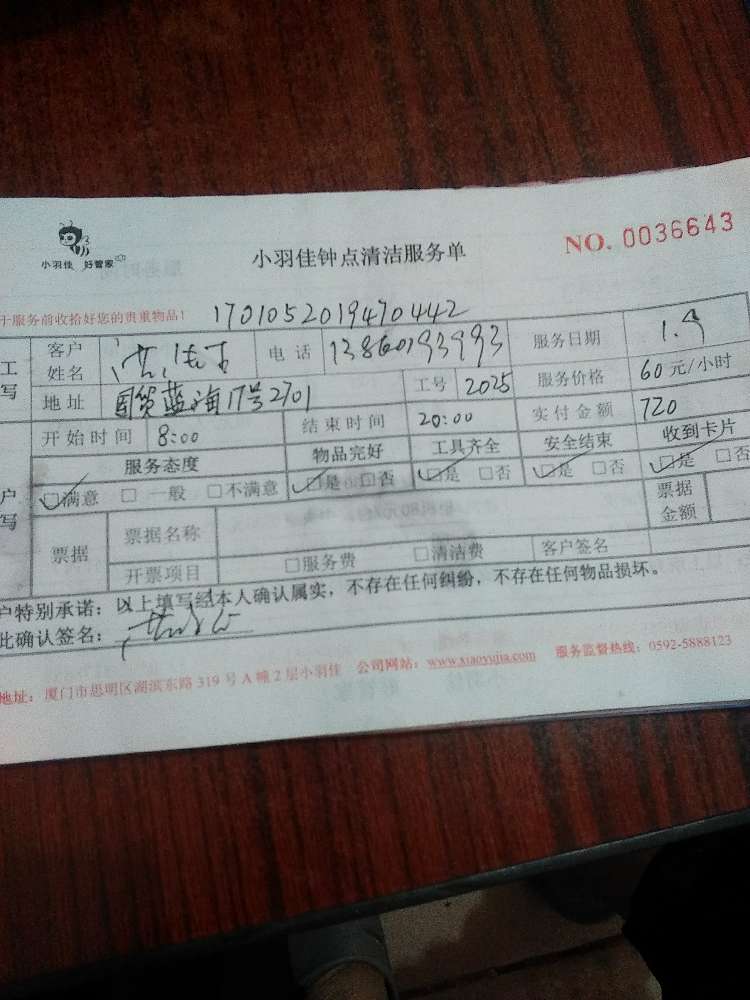 小羽佳 好管家
小羽佳钟点清洁服务单
NO. 0036643
于服务前收拾好您的贵重物品! 1701052019470442
工 客户姓名 电话 13860193993 服务日期 1.9
写 地址 国贸蓝海17号2701 工号 2025 服务价格 60元/小时
开始时间 8:00 结束时间 20:00 实付金额 720
户 服务态度 物品完好 工具齐全 安全结束 收到卡片
写 □满意 □一般 □不满意 □是 □否 □是 □否 □是 □否 □是 □否
票据 票据名称 票据金额
开票项目 □服务费 □清洁费 客户签名
户特别承诺:以上填写经本人确认属实,不存在任何纠纷,不存在任何物品损坏。
此确认签名:
地址:厦门市思明区湖滨东路319号A幢2层小羽佳 公司网站:www.xiaoyujia.com 服务监督热线:0592-5888123